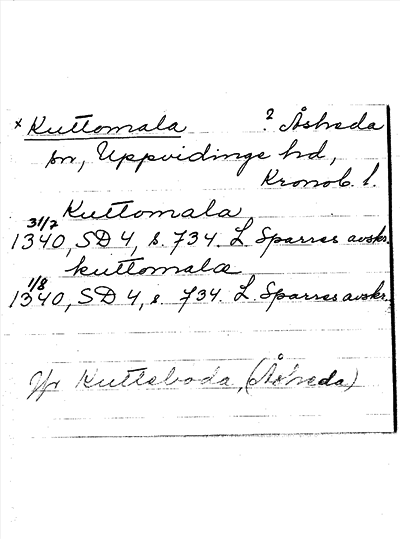 × Kuttomala ? Åsheda
sn, Uppvidinge hd,
Kronob. l.
Kuttomala
31/7
1340, SD 4, s. 734. L Sparres avskr.
kuttomala
1/8
1340, SD 4, s. 734. L Sparres avskr.
Jfr Kuttaboda, (Åsheda)